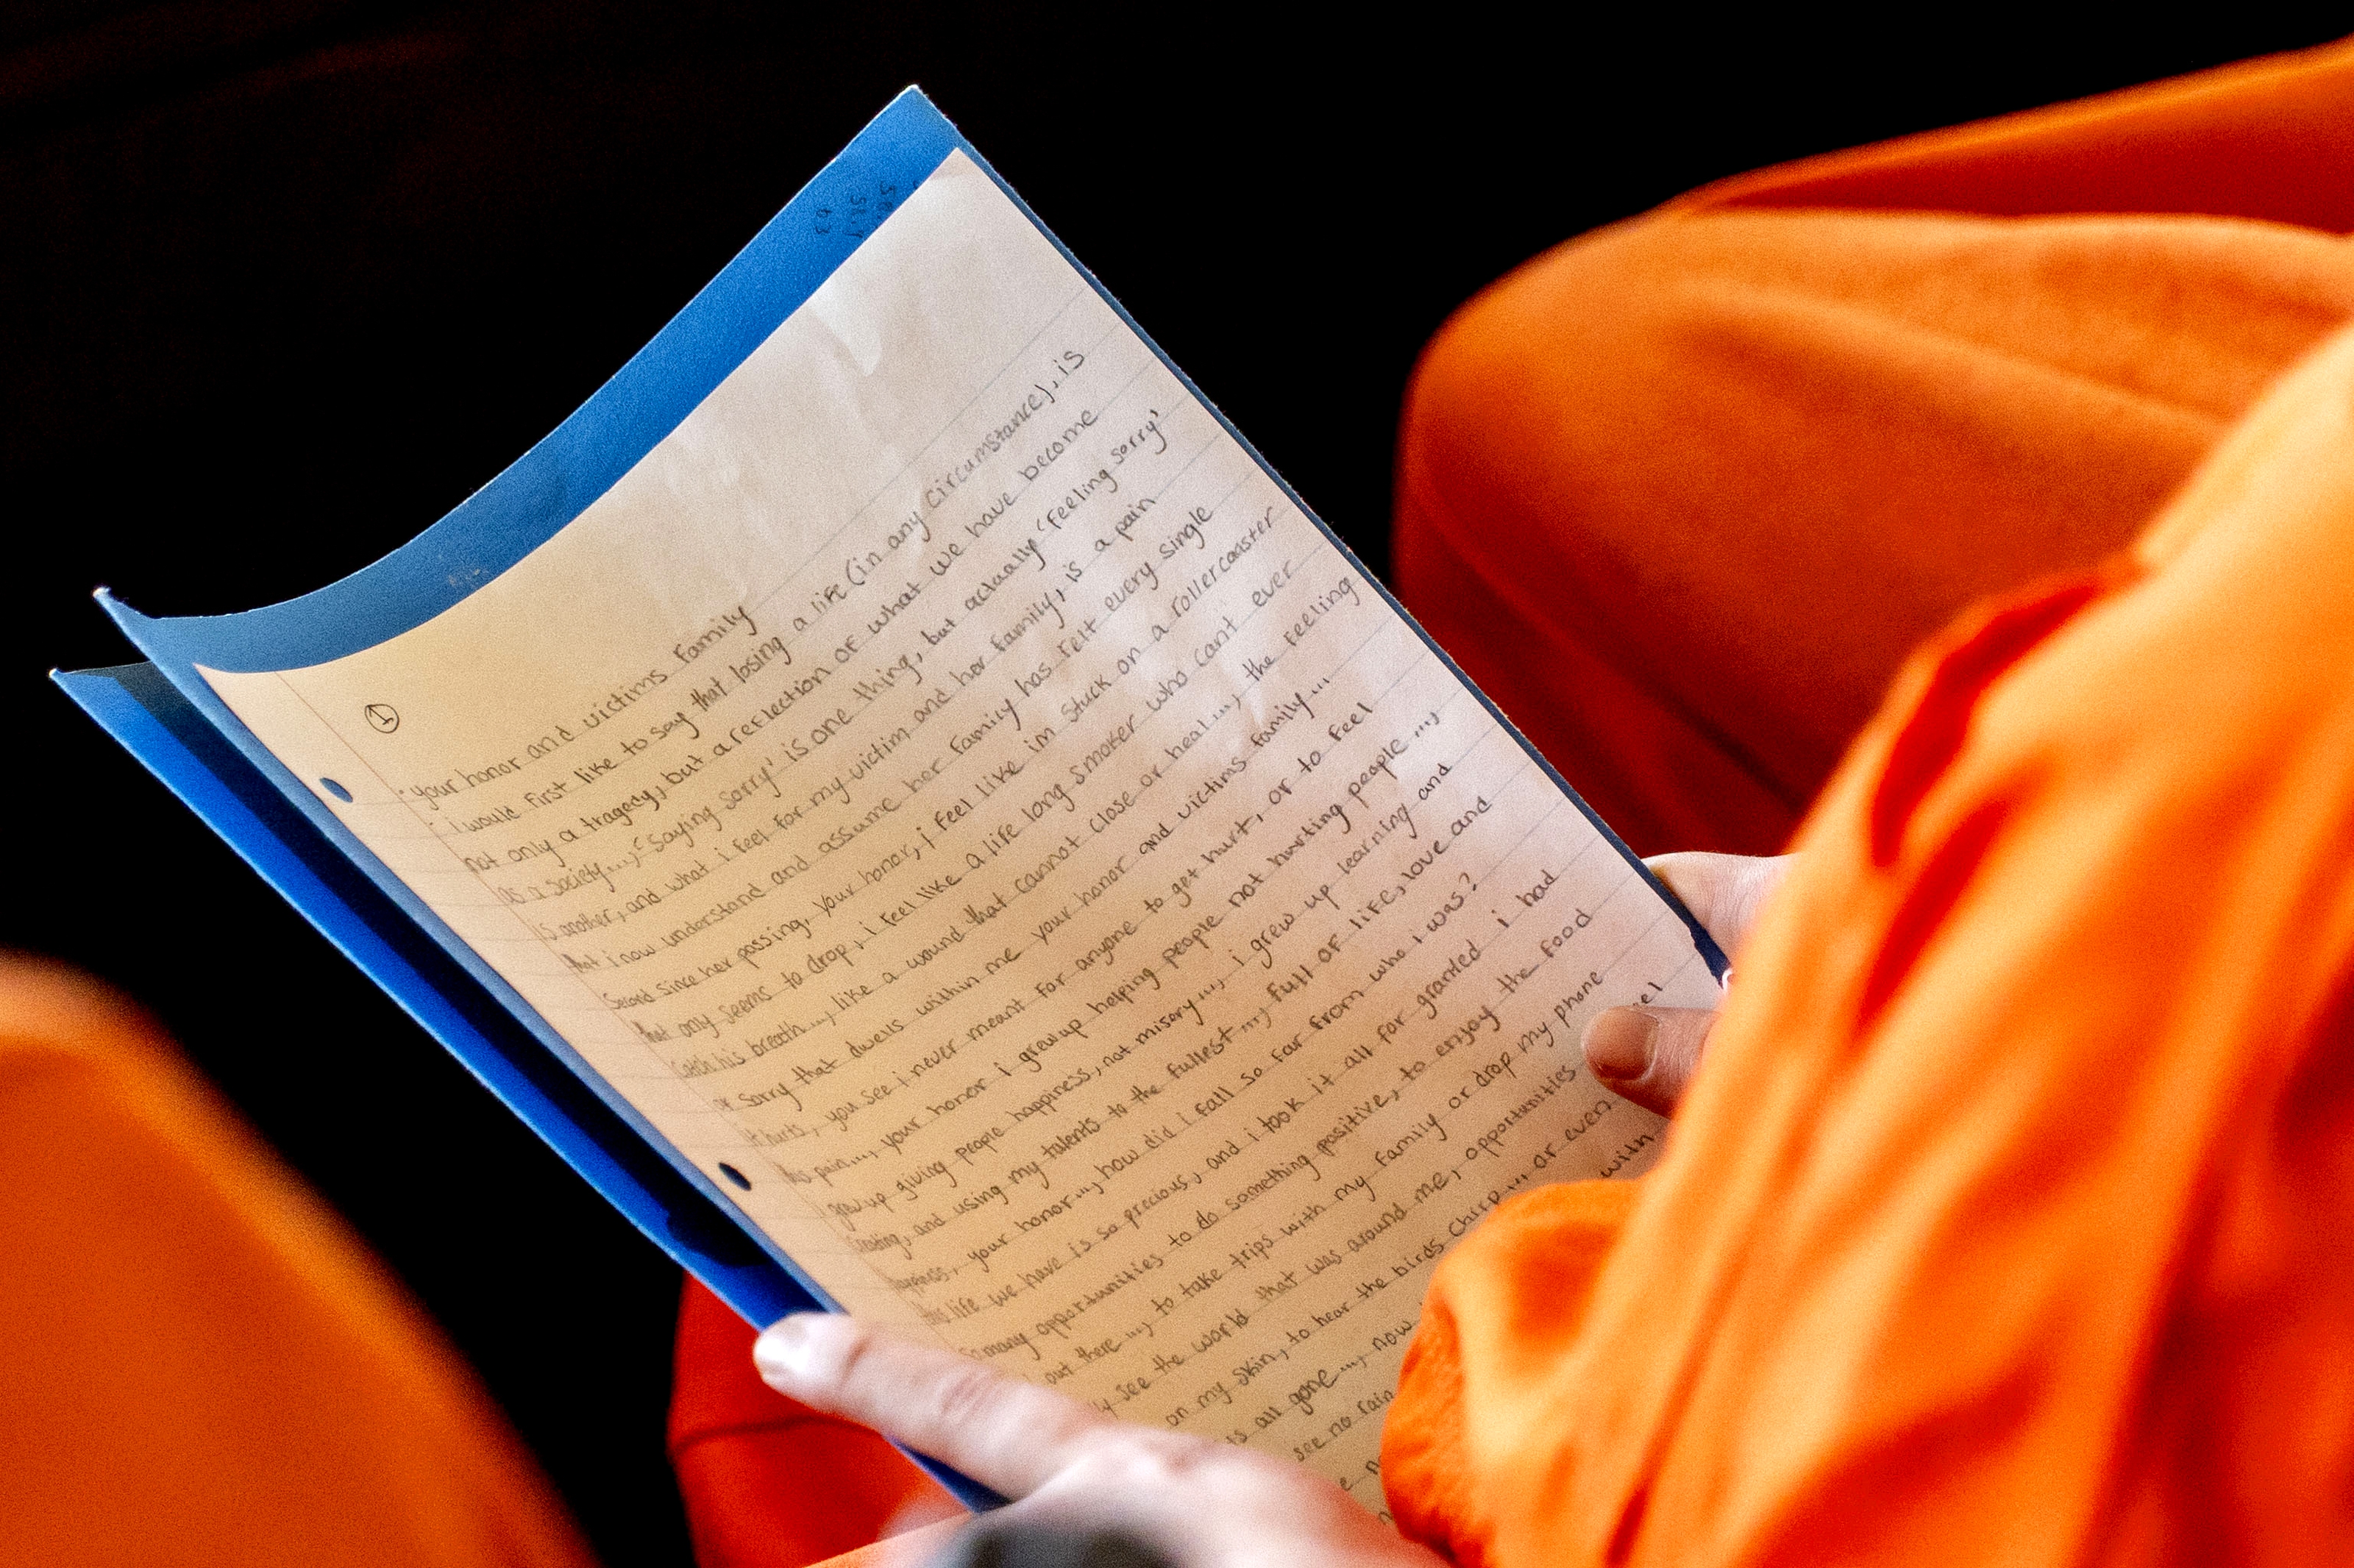 1
"your honor and victims family
- i would first like to say that losing a life (in any circumstance), is
not only a tragedy, but a reflection of what we have become
as a society...., "saying sorry' is one thing, but actually 'feeling sorry'
is another, and what i feel for my victim and her family, is a pain
that i now understand and assume her family has felt every single
second since her passing, your honor, i feel like im stuck on a rollercoaster
that only seems to drop, i feel like a life long smoker who cant ever
catch his breath..., like a wound that cannot close or heal...., the feeling
or sorry that dwells within me your honor and victims family...
it hurts, you see i never meant for anyone to get hurt, or to feel
this pain...., your honor i grew up helping people not hurting people ....,
i grew up giving people happiness, not misery...., i grew up learning and
creating, and using my talents to the fullest ...., full of life, love and
happiness, your honor...., how did i fall so far from who i was?
this life we have is so precious, and i took it all for granted i had
so many opportunities to do something positive, to enjoy the food
out there ...., to take trips with my family or drop my phone
see the world that was around me, opportunities
eel
on my skin, to hear the birds chirp .... or even
all gone ...., now
with
see no rain